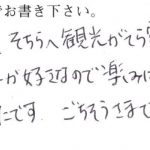 でお書き下さい。
そちらへ観光がてら
が好きなので楽しみに
たです。 ごちそうさまで